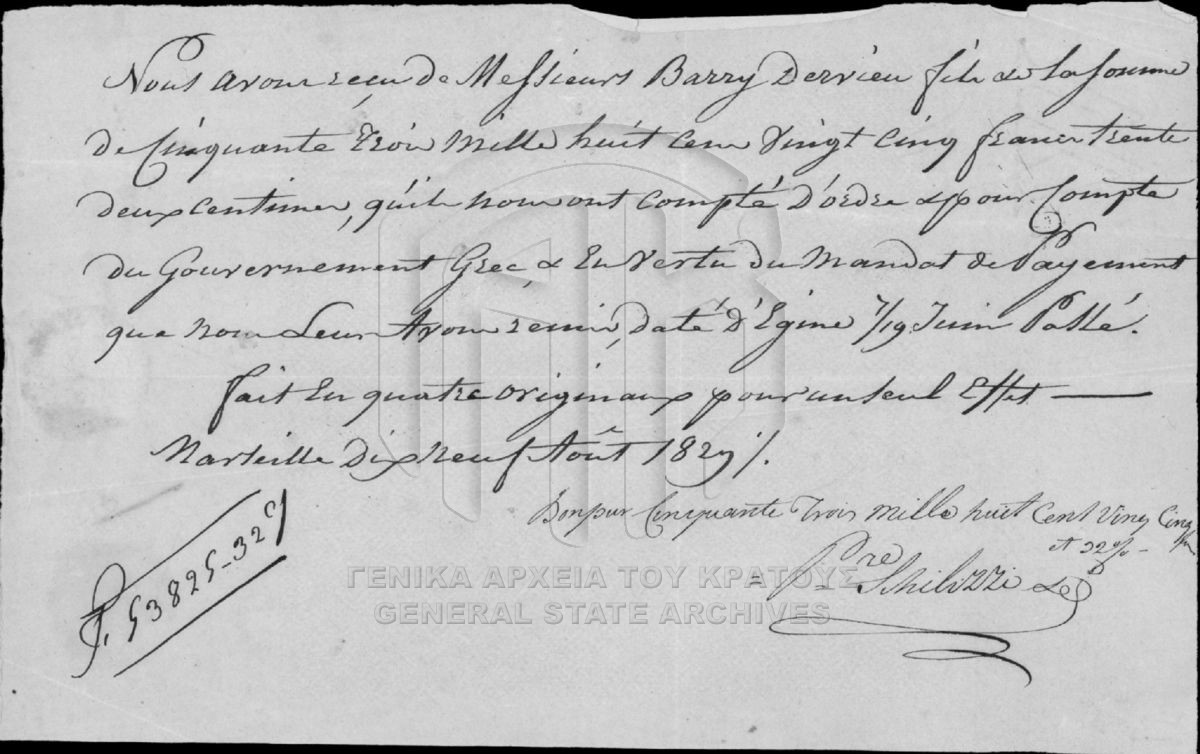 Nous avons reçu de Messieurs Barry Dervieu fils & Co la somme
de Cinquante trois Mille huit cens Vingt cinq francs trente
deux centimes, qu'ils nous ont compté D'ordre & pour Compte
du Gouvernement Grec & En Vertu du Mandat de Payement
que nous Leur Avons remis, daté d'Egine 7/19 Juin Passé.
fait En quatre originaux pour un seul Effet
Marseille Dix neuf Août 1829 /.
Bon pour Cinquante Trois Mille huit Cent Ving Cinq
et 32 c/
Pre Schilizzi & Co
F. 53825-32 c
ΓΕΝΙΚΑ ΑΡΧΕΙΑ ΤΟΥ ΚΡΑΤΟΥΣ
GENERAL STATE ARCHIVES